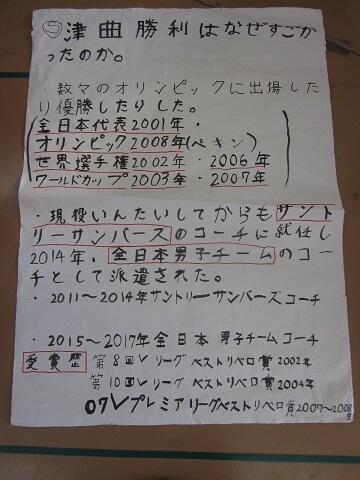 ⑤津曲勝利はなぜすごか
ったのか。
・数々のオリンピックに出場した
り優勝したりした。
全日本代表2001年・
オリンピック2008年(ペキン)
世界選手権2002年・2006年
ワールドカップ2003年・2007年
・現役いんたいしてからもサント
リーサンバーズのコーチに就任し
2014年、全日本男子チームのコー
チとして派遣された。
・2011〜2014年サントリーサンバーズコーチ
・2015〜2017年全日本男子チームコーチ
受賞歴 第8回Vリーグベストリベロ賞2002年
第10回Vリーグベストリベロ賞2004年
07Vプレミアリーグベストリベロ賞2007〜2008年